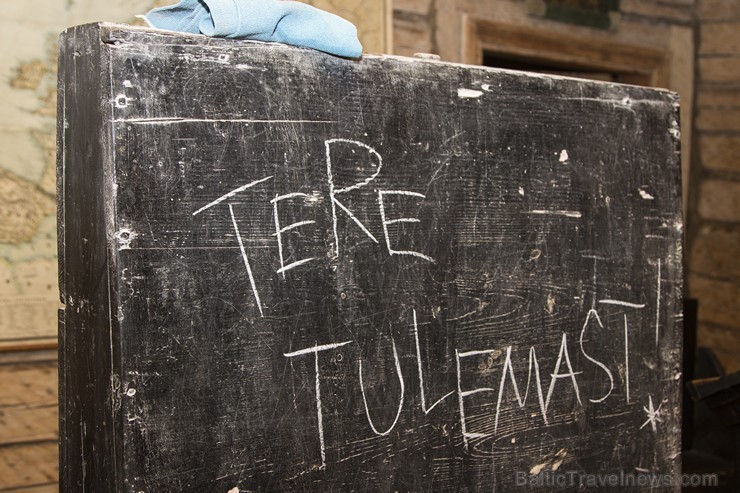 TERE
TULEMAST!
BalticTravelnews.com